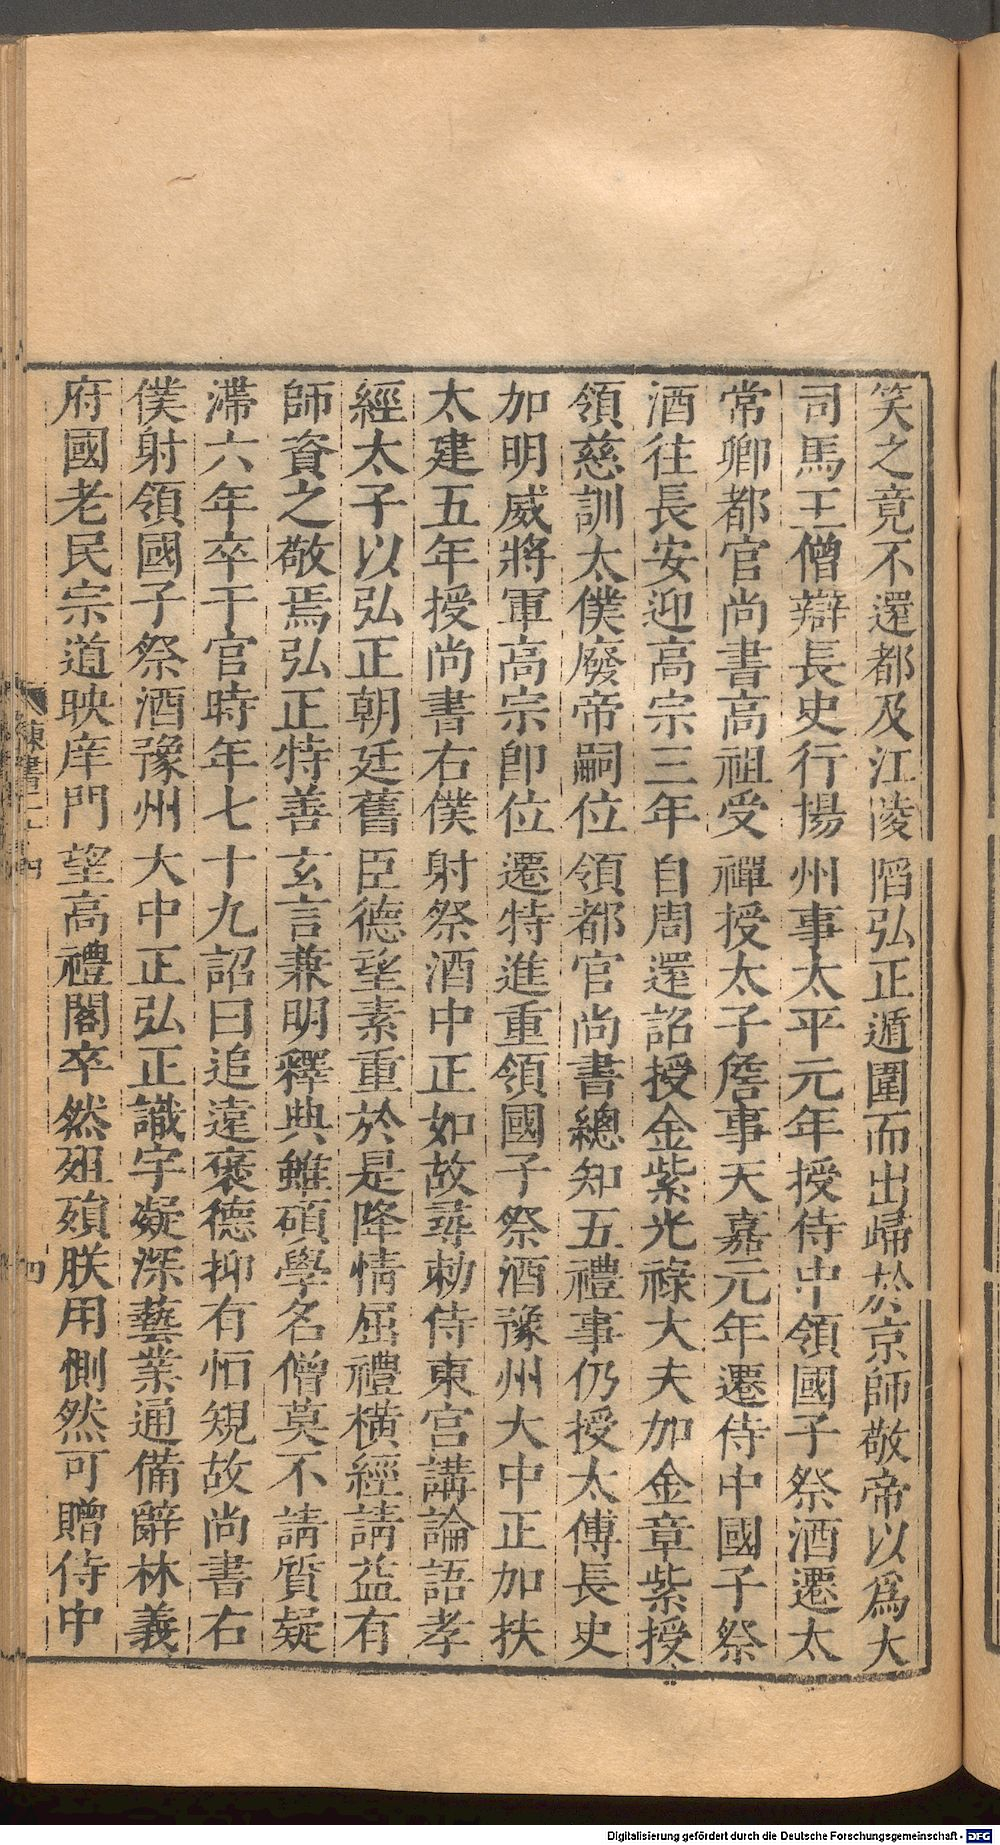 笑之竟不還都及江陵陷弘正遁圍而出歸於京師敬帝以爲大
司馬王僧辯長史行揚州事太平元年授侍中領國子祭酒遷太
常卿都官尚書高祖受禪授太子詹事天嘉元年遷侍中國子祭
酒往長安迎高宗三年自周還詔授金紫光祿大夫加金章紫授
領慈訓太僕廢帝嗣位領都官尚書總知五禮事仍授太傅長史
加明威將軍高宗卽位遷特進重領國子祭酒豫州大中正加扶
太建五年授尚書右僕射祭酒中正如故尋勅侍東宮講論語孝
經太子以弘正朝廷舊臣德望素重於是降情屈禮橫經請益有
師資之敬焉弘正特善玄言兼明釋典雖碩學名僧莫不請質疑
滯六年卒于官時年七十九詔曰追遠褒德抑有恒規故尚書右
僕射領國子祭酒豫州大中正弘正識宇凝深藝業通備辭林義
府國老民宗道映庠門望高禮閣卒然殂殞朕用惻然可贈侍中
Digitalisierung gefördert durch die Deutsche Forschungsgemeinschaft - DFG